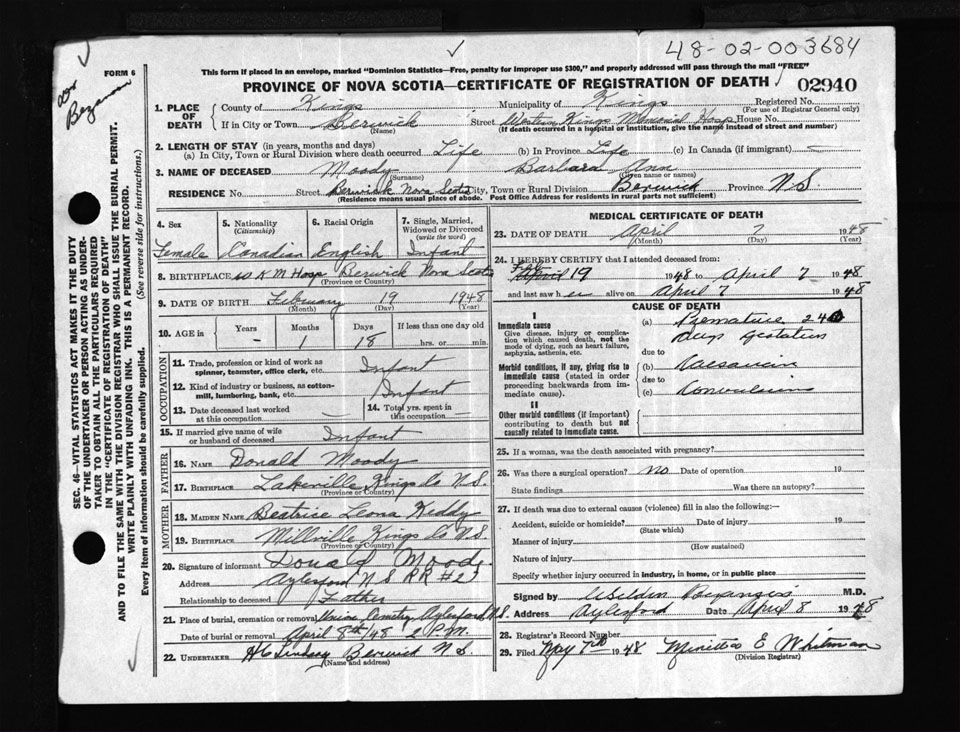 48-02-003684
FORM 6
This form if placed in an envelope, marked "Dominion Statistics—Free, penalty for improper use $300," and properly addressed will pass through the mail "FREE"
PROVINCE OF NOVA SCOTIA—CERTIFICATE OF REGISTRATION OF DEATH
02940
SEC. 46—VITAL STATISTICS ACT MAKES IT THE DUTY
OF THE UNDERTAKER OR PERSON ACTING AS UNDER-
TAKER TO OBTAIN ALL THE PARTICULARS REQUIRED
IN THE "CERTIFICATE OF REGISTRATION OF DEATH"
AND TO FILE THE SAME WITH THE DIVISION REGISTRAR WHO SHALL ISSUE THE BURIAL PERMIT.
WRITE PLAINLY WITH UNFADING INK. THIS IS A PERMANENT RECORD.
Every item of information should be carefully supplied. (See reverse side for instructions.)
1. PLACE OF DEATH County of Kings Municipality of Kings Registered No.
(For use of Registrar General only)
If in City or Town Berwick Street Western Kings Memorial Hosp House No.
(Name) (If death occurred in a hospital or institution, give the name instead of street and number)
2. LENGTH OF STAY (in years, months and days)
(a) In City, Town or Rural Division where death occurred Life (b) In Province Life (c) In Canada (if immigrant) —
3. NAME OF DECEASED Moody Barbara Ann
(Surname) (Given name or names)
RESIDENCE No. Street Berwick Nova Scotia City, Town or Rural Division Berwick Province N.S.
(Residence means usual place of abode. Post Office Address for residents in rural parts not sufficient)
4. Sex 5. Nationality 6. Racial Origin 7. Single, Married, Widowed or Divorced
(Citizenship) (write the word)
Female Canadian English Infant
8. BIRTHPLACE W K M Hosp Berwick Nova Scotia
(Province or Country)
9. DATE OF BIRTH February 19 1948
(Month) (Day) (Year)
10. AGE in Years Months Days If less than one day old
— 1 18 hrs. or min.
OCCUPATION
11. Trade, profession or kind of work as spinner, teamster, office clerk, etc. Infant
12. Kind of industry or business, as cotton-mill, lumbering, bank, etc. Infant
13. Date deceased last worked at this occupation — 14. Total yrs. spent in this occupation —
15. If married give name of wife or husband of deceased Infant
FATHER
16. NAME Donald Moody
17. BIRTHPLACE Lakeville Kings Co N.S.
(Province or Country)
MOTHER
18. MAIDEN NAME Beatrice Leona Keddy
19. BIRTHPLACE Millville Kings Co N.S.
(Province or Country)
20. Signature of informant Donald Moody
Address Aylesford N S RR #2
Relationship to deceased Father
21. Place of burial, cremation or removal Union Cemetry, Aylesford N.S.
Date of burial or removal April 8th/48 2 P.M.
22. UNDERTAKER H C Lindsay Berwick N S.
(Name and address)
MEDICAL CERTIFICATE OF DEATH
23. DATE OF DEATH April 7 1948
(Month) (Day) (Year)
24. I HEREBY CERTIFY that I attended deceased from:
Feb April 19 1948 to April 7 1948
and last saw her alive on April 7 1948
CAUSE OF DEATH
I
Immediate cause
Give disease, injury or complication which caused death, not the mode of dying, such as heart failure, asphyxia, asthenia, etc.
(a) Premature 24
Gestation
due to
Morbid conditions, if any, giving rise to immediate cause (stated in order proceeding backwards from immediate cause).
(b)
due to
(c) Convulsions
II
Other morbid conditions (if important) contributing to death but not causally related to immediate cause.
25. If a woman, was the death associated with pregnancy?
26. Was there a surgical operation? no Date of operation 19
State findings Was there an autopsy?
27. If death was due to external causes (violence) fill in also the following:—
Accident, suicide or homicide? Date of injury 19
(State which)
Manner of injury
(How sustained)
Nature of injury
Specify whether injury occurred in industry, in home, or in public place
Signed by M.D.
Address Aylesford Date April 8 1948
28. Registrar's Record Number
29. Filed May 7th 1948 Minetta E Whitman
(Division Registrar)